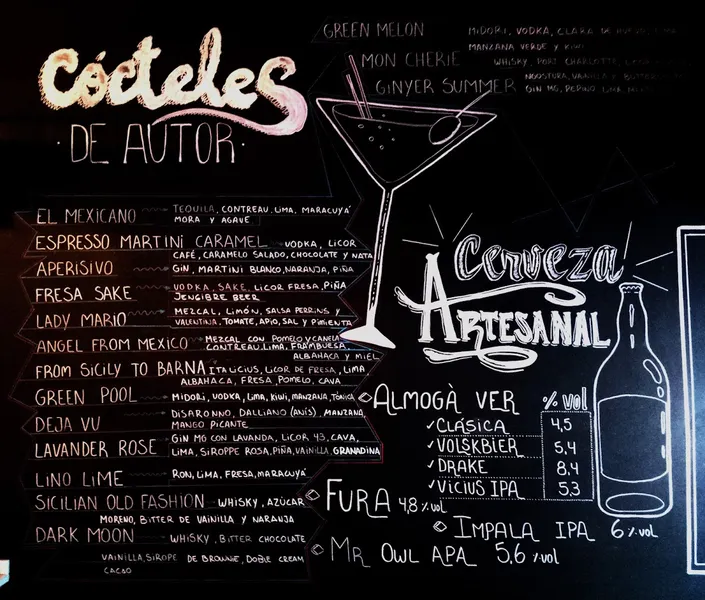 Cócteles
DE AUTOR
GREEN MELON MIDORI, VODKA, CLARA DE
MANZANA VERDE Y KIWI
MON CHERIE WHISKY, PORT CHARLOTTE,
ANGOSTURA, VAINILLA Y
GINYER SUMMER GIN MG, PEPINO, LIMA,
EL MEXICANO TEQUILA, CONTREAU, LIMA, MARACUYÁ
MORA Y AGAVE
ESPRESSO MARTINI CARAMEL VODKA, LICOR
CAFÉ, CARAMELO SALADO, CHOCOLATE Y NATA
APERISIVO GIN, MARTINI BLANKO, NARANJA, PIÑA
FRESA SAKE VODKA, SAKE, LICOR FRESA, PIÑA
JENGIBRE BEER
LADY MARIO MEZCAL, LIMÓN, SALSA PERRINS Y
VALENTINA, TOMATE, APIO, SAL Y PIMIENTA
ANGEL FROM MEXICO MEZCAL CON POMELO Y CANELA
CONTREAU, LIMA, FRAMBUESA,
ALBAHACA Y MIEL
FROM SICILY TO BARNA ITALICIUS, LICOR DE FRESA, LIMA
ALBAHACA, FRESA, POMELO, CAVA
GREEN POOL MIDORI, VODKA, LIMA, KIWI, MANZANA, TÓNICA
DEJA VU DISARONNO, DALLIANO (ANÍS), MANZANA
MANGO PICANTE
LAVANDER ROSE GIN MG CON LAVANDA, LICOR 43, CAVA,
LIMA, SIROPPE ROSA, PIÑA, VAINILLA, GRANADINA
LINO LIME RON, LIMA, FRESA, MARACUYÁ
SICILIAN OLD FASHION WHISKY, AZÚCAR
MORENO, BITTER DE VAINILLA Y NARANJA
DARK MOON WHISKY, BITTER CHOCOLATE
VAINILLA, SIROPE DE BROWNIE, DOBLE CREAM
CACAO
Cerveza
ARTESANAL
ALMOGÀVER % VOL
✓CLÁSICA 4,5
✓VOLSKBIER 5,4
✓DRAKE 8,4
✓VICIUS IPA 5,3
FURA 4,8 % VOL
IMPALA IPA 6 % VOL
MR OWL APA 5,6 % VOL